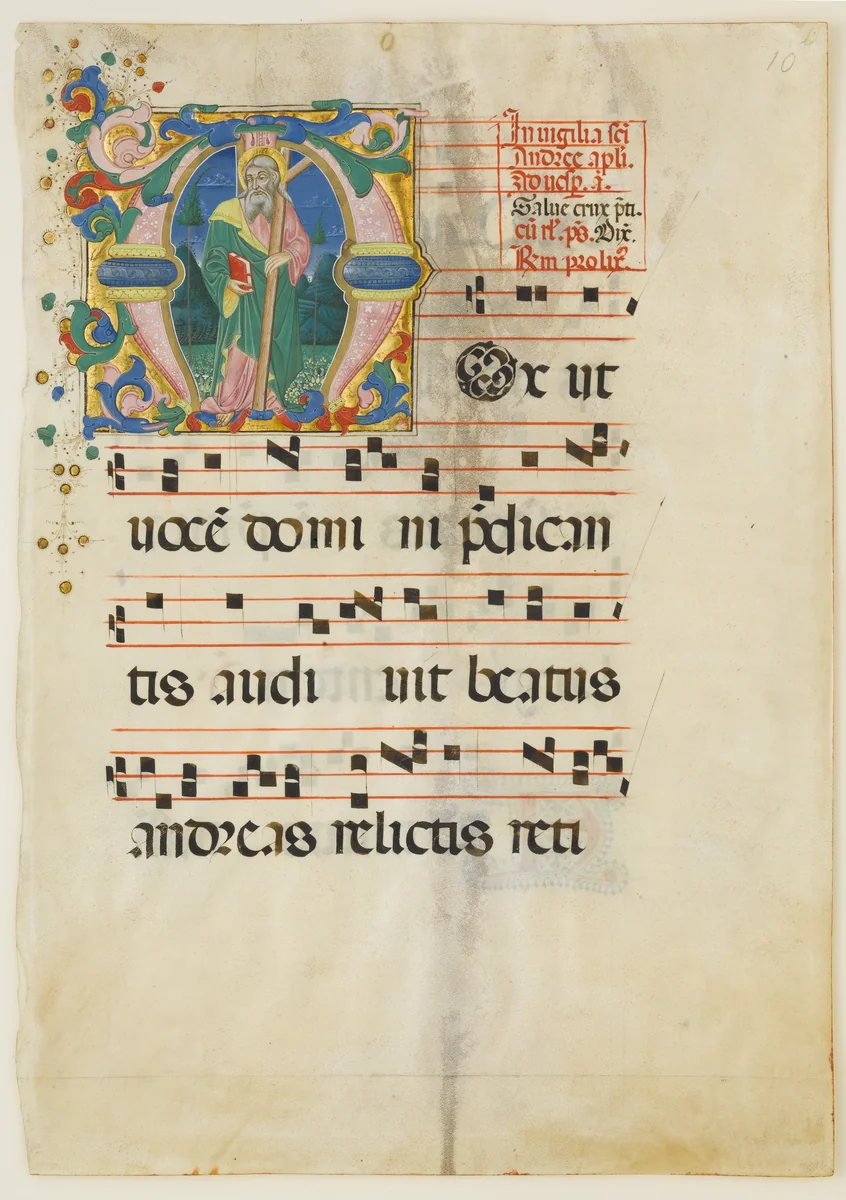 10
In uigilia sc̄i
Andree apl̄i.
Ad uesp̱. a.
Salue crux p̄ti.
cū rl̄. ps̄. Dix̄.
Rm prolix̄.
MOx ut
uocē domi ni p̄dican
tis audi uit beatus
andreas relictis reti